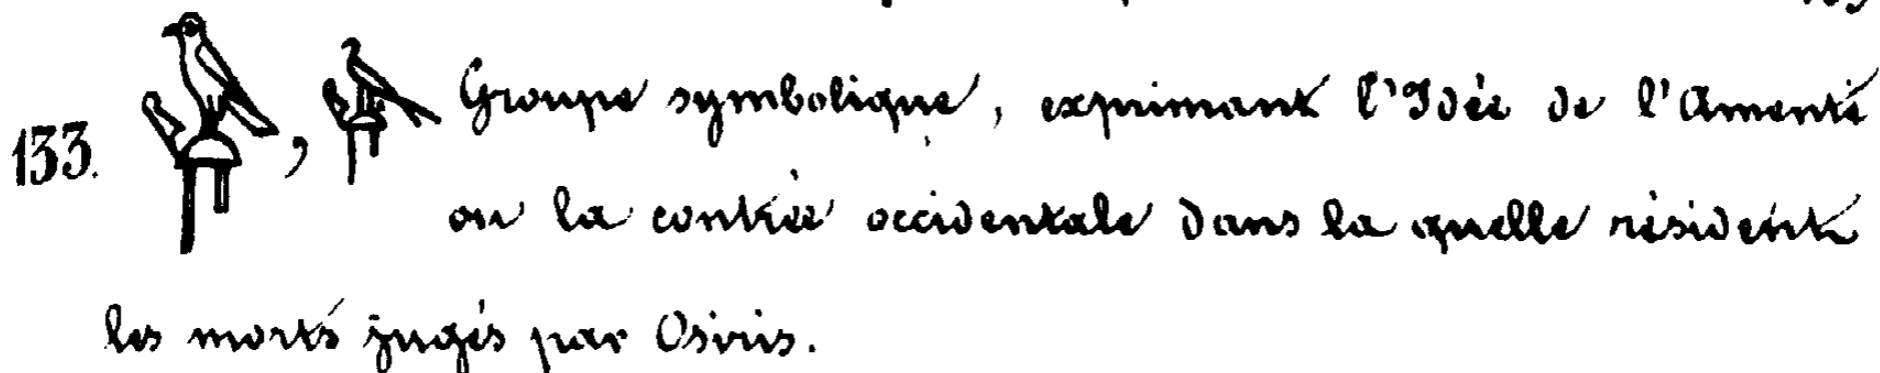 133. 𓅃, 𓅃 Groupe symbolique, exprimant l'Idée de l'Amenté
ou la contrée occidentale dans la quelle résident
les morts jugés par Osiris.